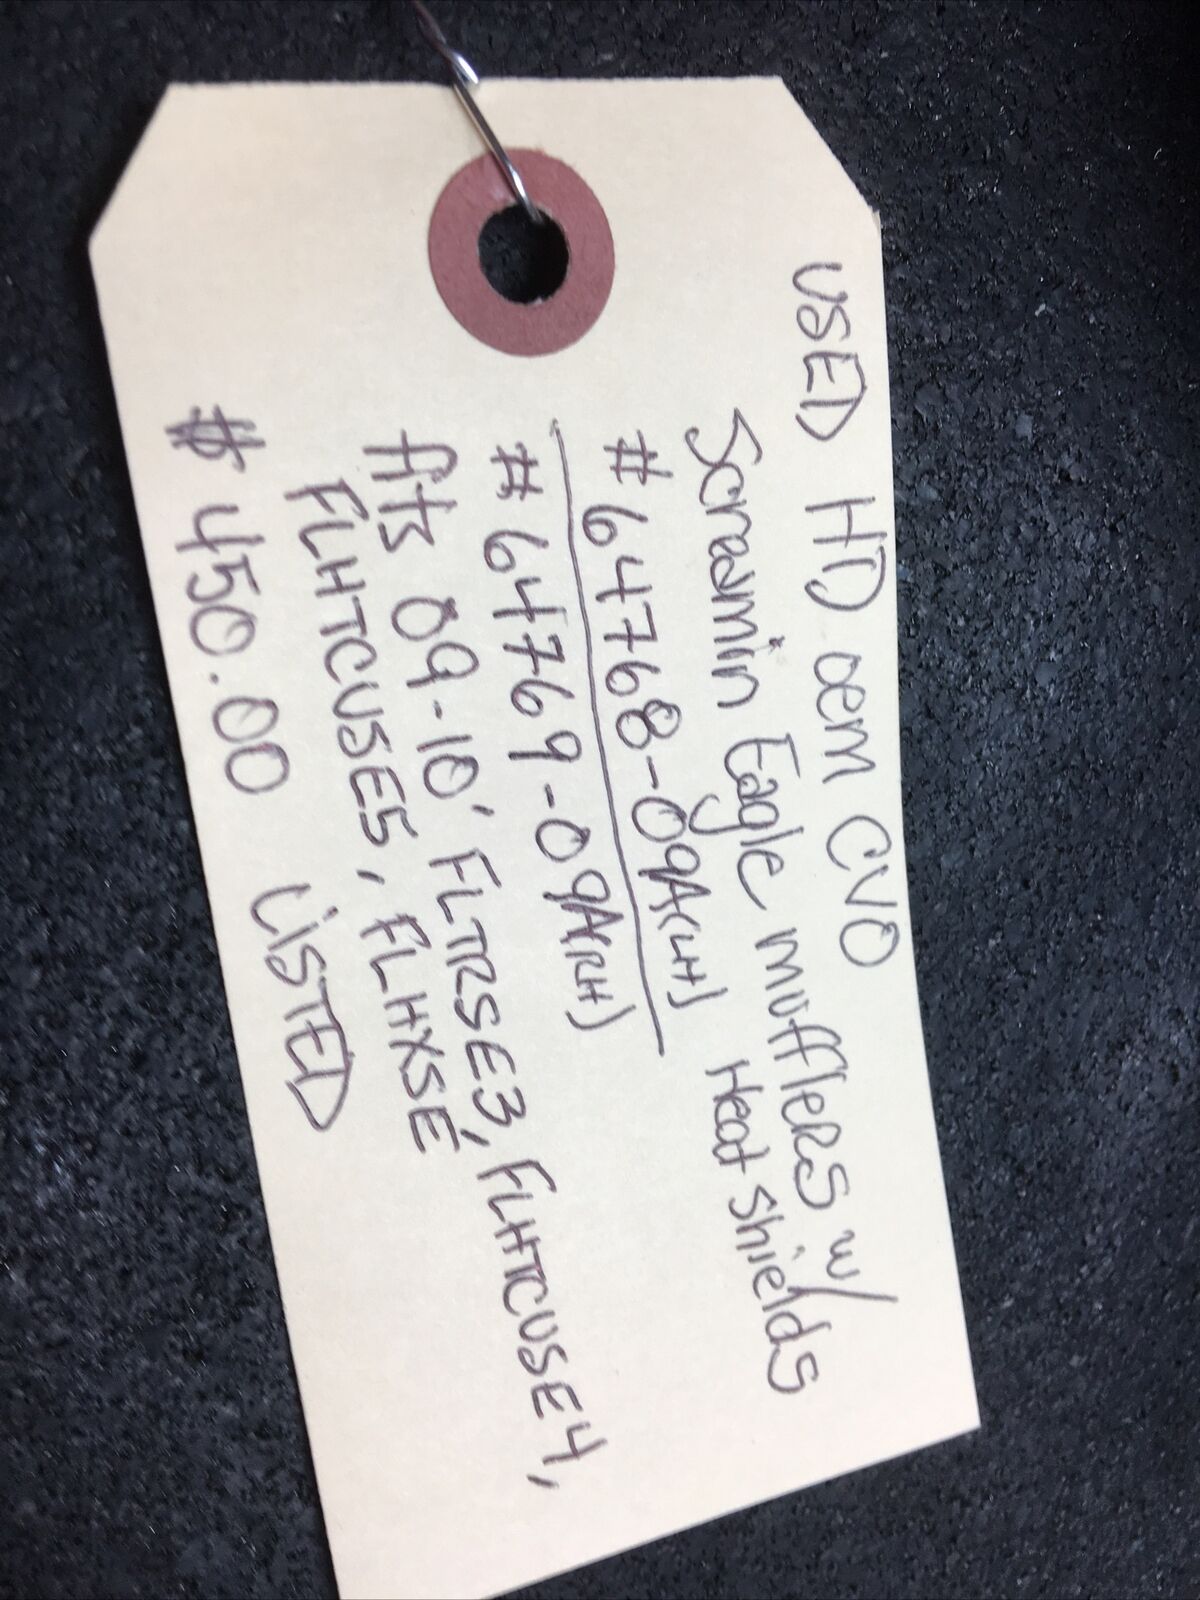 USED HD oem CVO
Screamin Eagle mufflers w/
Heat Shields
# 64768-09A(LH)
# 64769-09A(RH)
fits 09-10' FLTRSE3, FLHTCUSE4,
FLHTCUSE5, FLHXSE
$ 450.00 LISTED